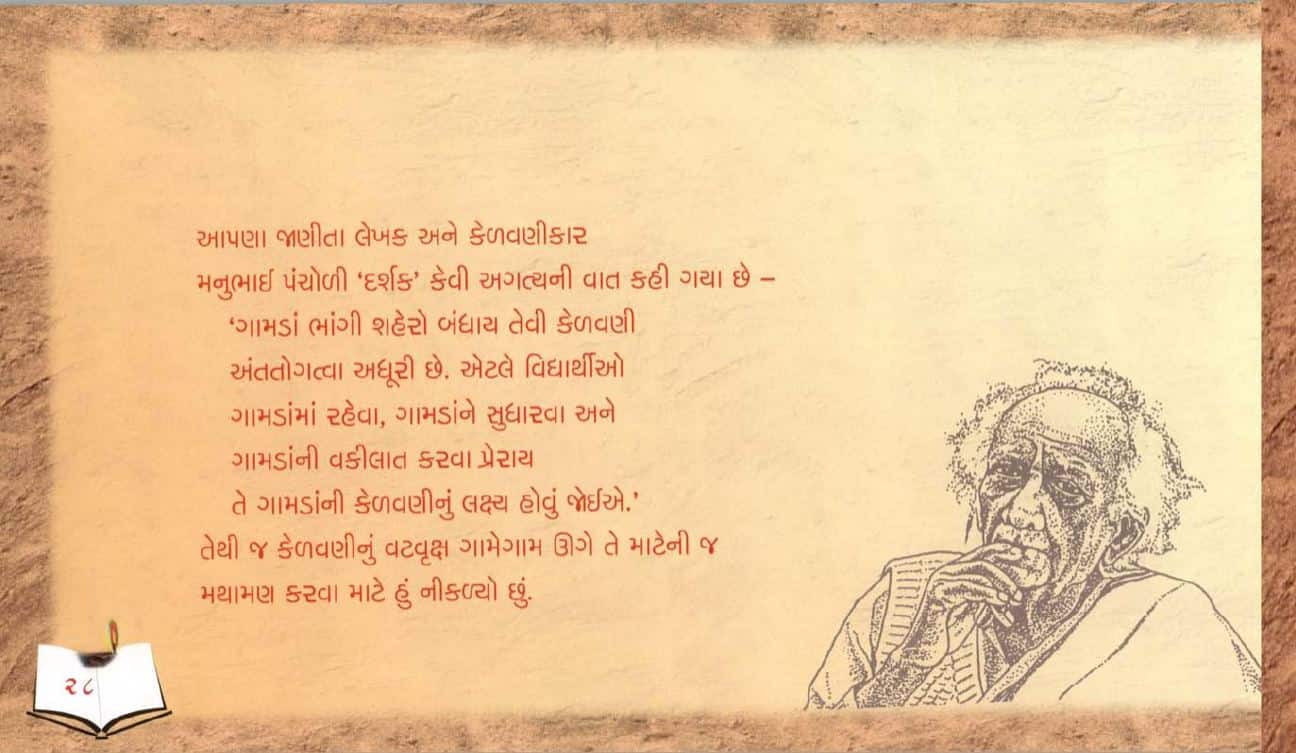 આપણા જાણીતા લેખક અને કેળવણીકાર
મનુભાઈ પંચોળી ‘દર્શક’ કેવી અગત્યની વાત કહી ગયા છે –
‘ગામડાં ભાંગી શહેરો બંધાય તેવી કેળવણી
અંતતોગત્વા અધૂરી છે. એટલે વિદ્યાર્થીઓ
ગામડાંમાં રહેવા, ગામડાંને સુધારવા અને
ગામડાંની વકીલાત કરવા પ્રેરાય
તે ગામડાંની કેળવણીનું લક્ષ્ય હોવું જોઈએ.’
તેથી જ કેળવણીનું વટવૃક્ષ ગામેગામ ઊગે તે માટેની જ
મથામણ કરવા માટે હું નીકળ્યો છું.
૨૮